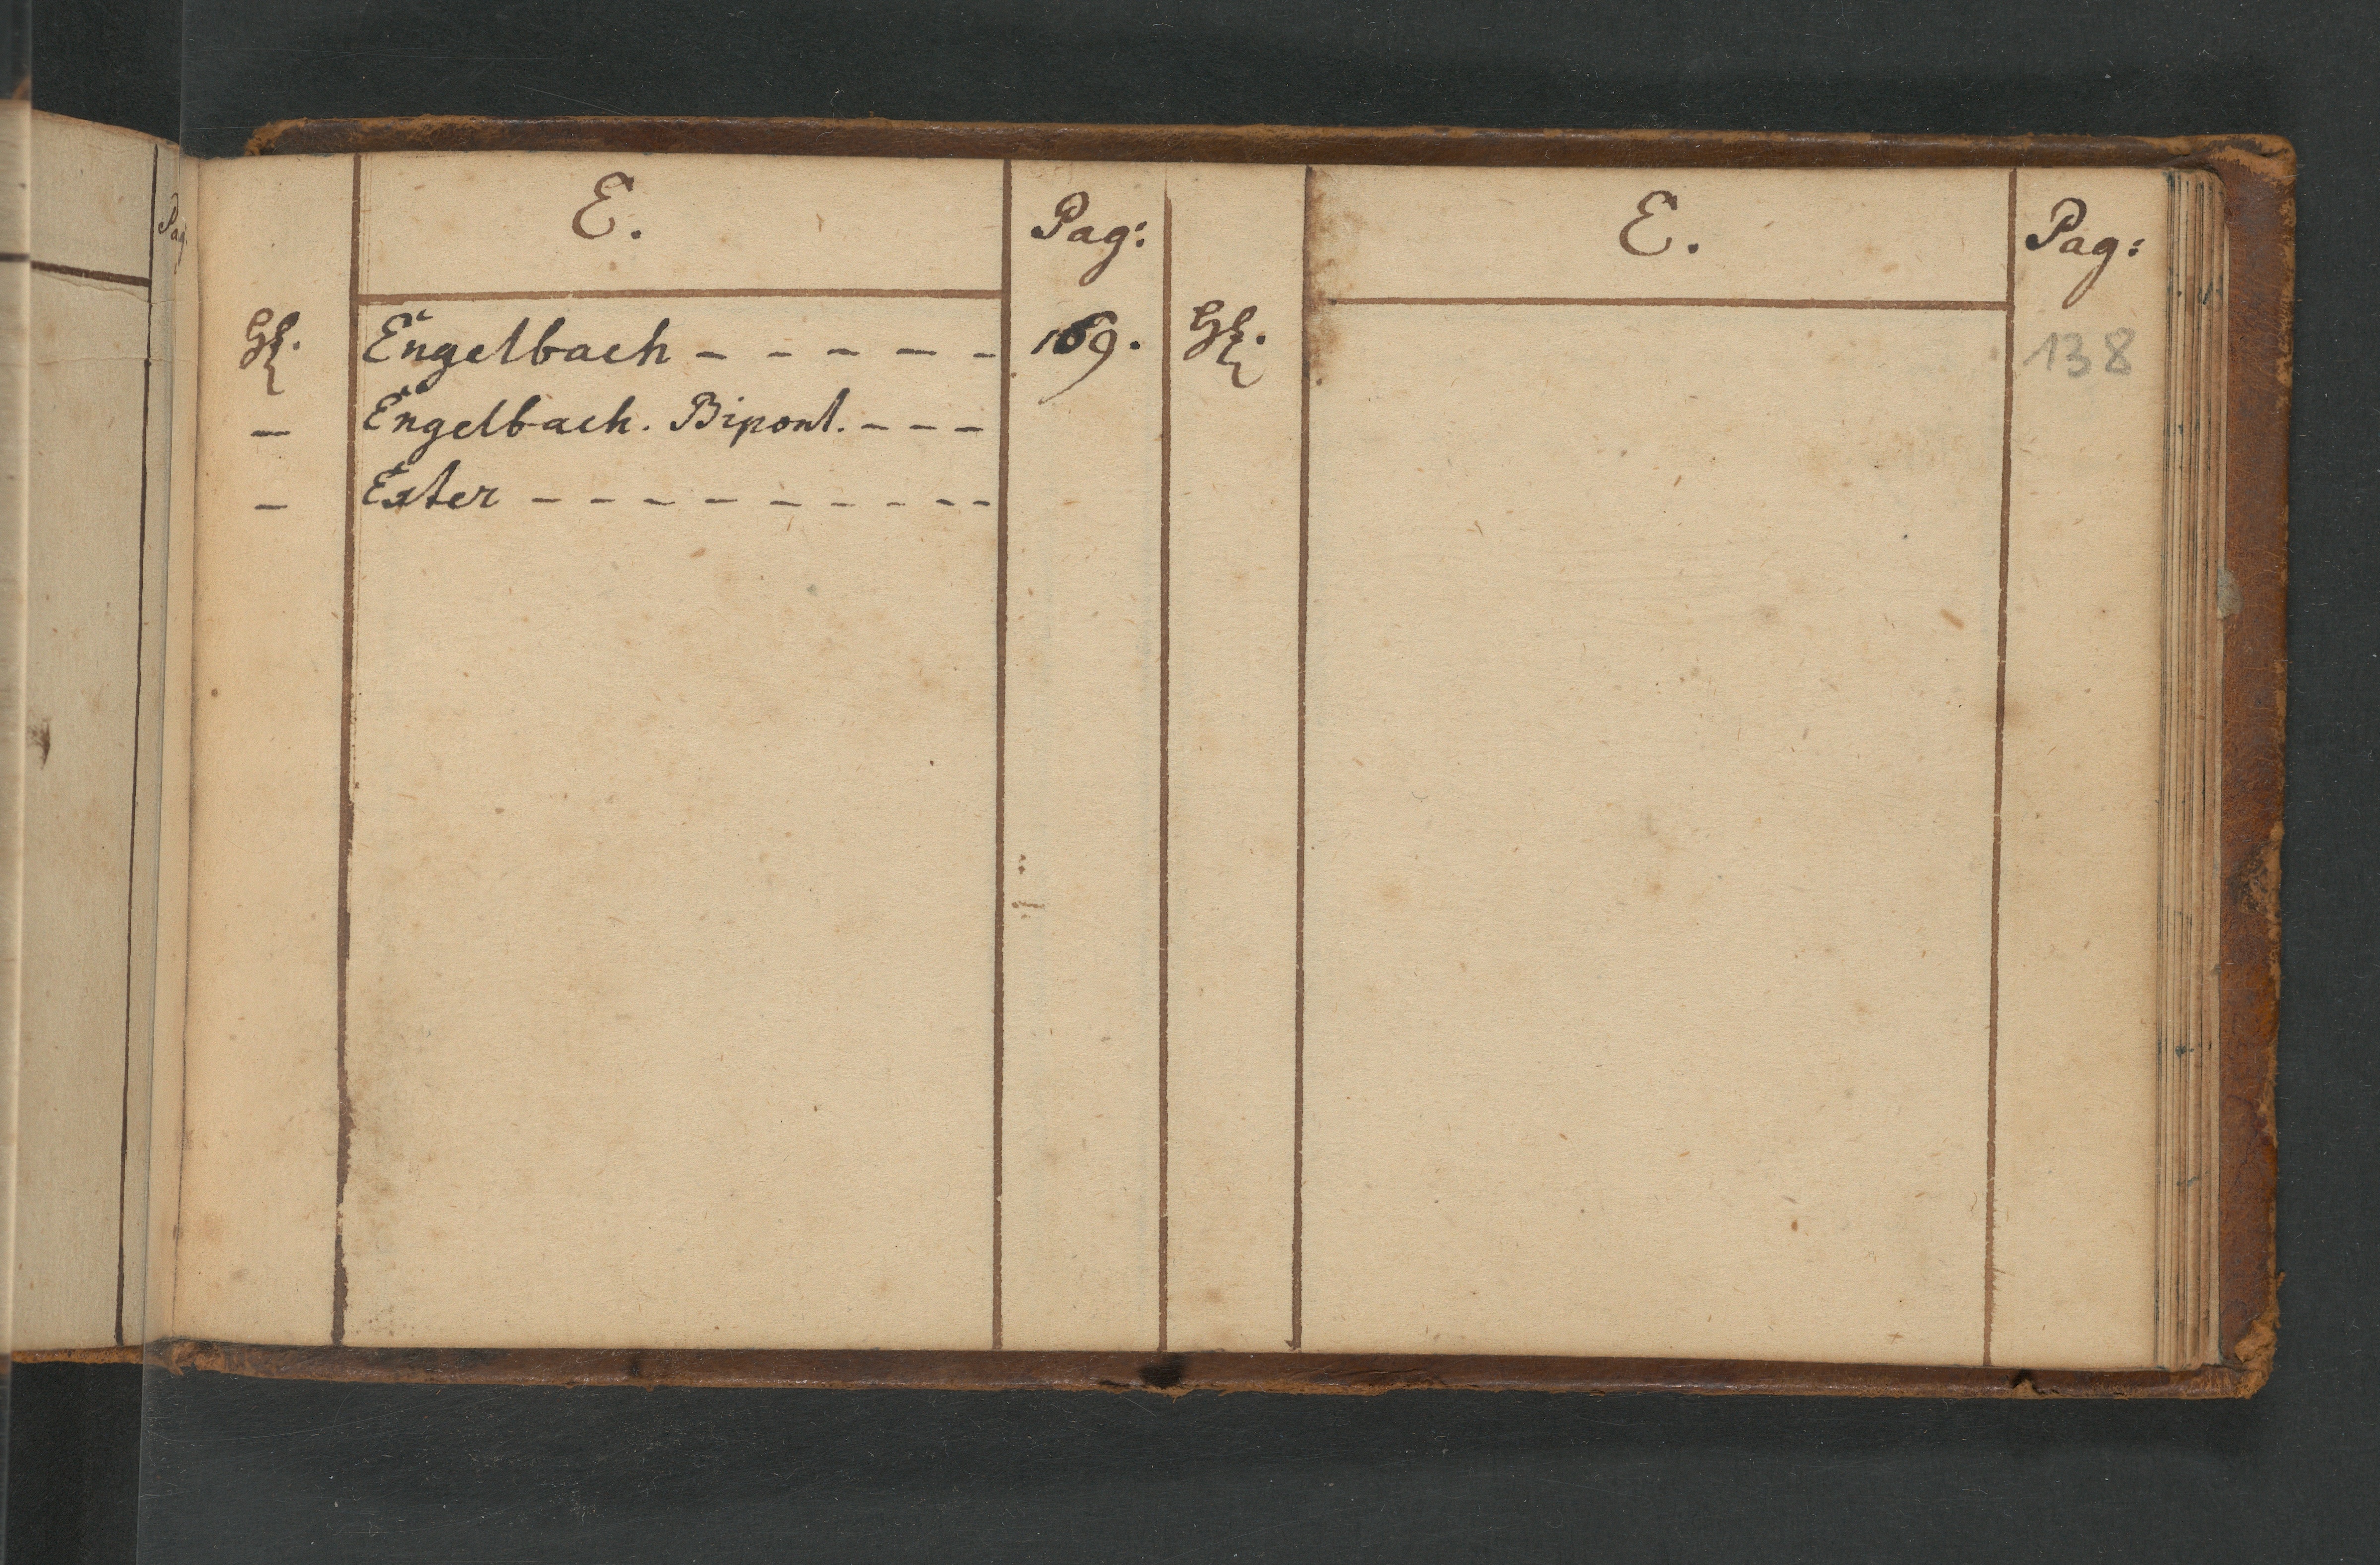 Pag.
E.
Pag:
E.
Pag:
H. Engelbach - - - - - 169. H. 138
- Engelbach. Bipont. - - -
- Ester - - - - - - - - - -